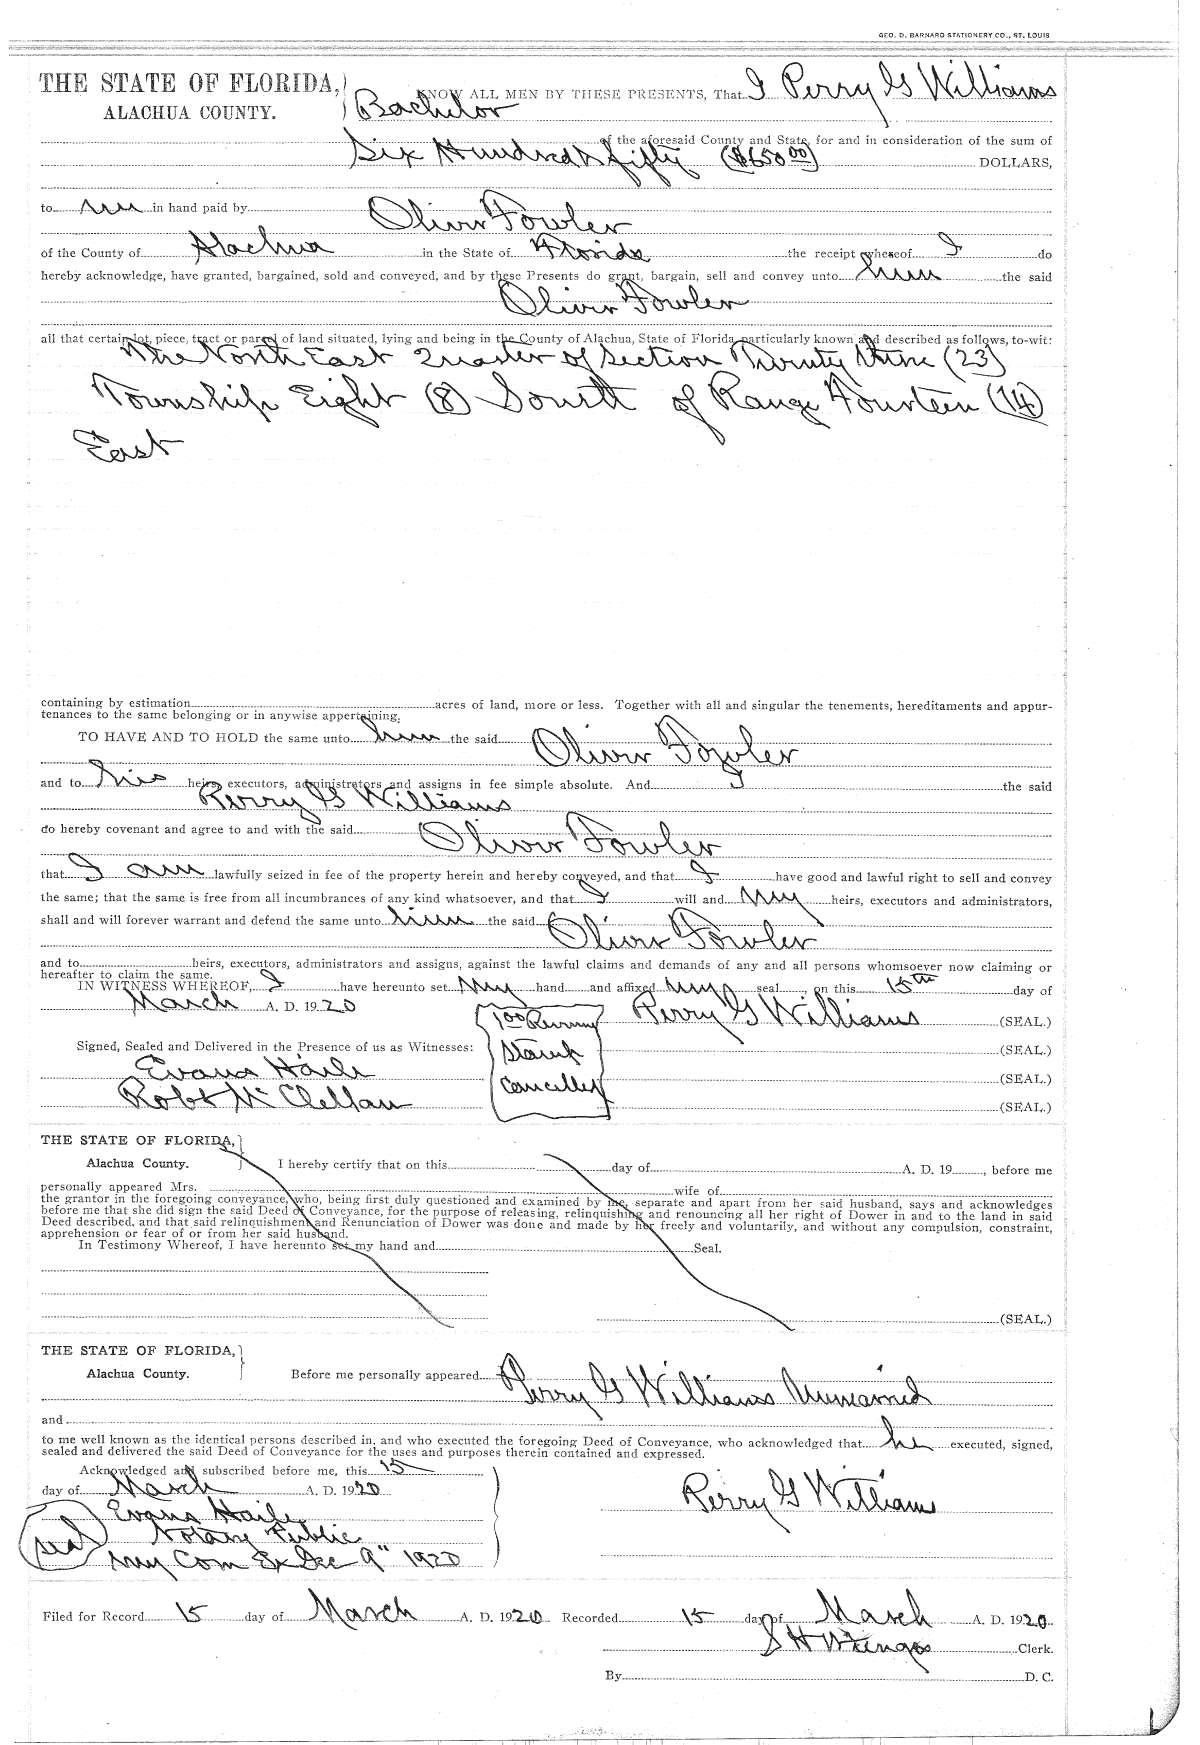 GEO. D. BARNARD STATIONERY CO., ST. LOUIS
THE STATE OF FLORIDA, KNOW ALL MEN BY THESE PRESENTS, That I Perry G Williams
ALACHUA COUNTY. Bachelor
of the aforesaid County and State, for and in consideration of the sum of
Six Hundred & fifty ($650 00) DOLLARS,
to me in hand paid by Oliver Fowler
of the County of Alachua in the State of Florida the receipt whereof I do
hereby acknowledge, have granted, bargained, sold and conveyed, and by these Presents do grant, bargain, sell and convey unto him the said
Oliver Fowler
all that certain lot, piece, tract or parcel of land situated, lying and being in the County of Alachua, State of Florida, particularly known and described as follows, to-wit:
The North East Quarter of Section Twenty three (23)
Township Eight (8) South of Range Fourteen (14)
East
containing by estimation acres of land, more or less. Together with all and singular the tenements, hereditaments and appur-
tenances to the same belonging or in anywise appertaining.
TO HAVE AND TO HOLD the same unto him the said Oliver Fowler
and to his heirs, executors, administrators and assigns in fee simple absolute. And I the said
Perry G Williams
do hereby covenant and agree to and with the said Oliver Fowler
that I am lawfully seized in fee of the property herein and hereby conveyed, and that I have good and lawful right to sell and convey
the same; that the same is free from all incumbrances of any kind whatsoever, and that I will and my heirs, executors and administrators,
shall and will forever warrant and defend the same unto him the said Oliver Fowler
and to heirs, executors, administrators and assigns, against the lawful claims and demands of any and all persons whomsoever now claiming or
hereafter to claim the same.
IN WITNESS WHEREOF, I have hereunto set my hand and affixed my seal, on this 15th day of
March A. D. 1920 Perry G Williams (SEAL.)
1 00 Revenue
Signed, Sealed and Delivered in the Presence of us as Witnesses: Stamp (SEAL.)
Evans Haile Cancelled (SEAL.)
Robt McClellan (SEAL.)
THE STATE OF FLORIDA,
Alachua County. I hereby certify that on this day of A. D. 19 , before me
personally appeared Mrs. wife of
the grantor in the foregoing conveyance, who, being first duly questioned and examined by me, separate and apart from her said husband, says and acknowledges
before me that she did sign the said Deed of Conveyance, for the purpose of releasing, relinquishing and renouncing all her right of Dower in and to the land in said
Deed described, and that said relinquishment and Renunciation of Dower was done and made by her freely and voluntarily, and without any compulsion, constraint,
apprehension or fear of or from her said husband.
In Testimony Whereof, I have hereunto set my hand and Seal.
(SEAL.)
THE STATE OF FLORIDA,
Alachua County. Before me personally appeared Perry G Williams Unmarried
and
to me well known as the identical persons described in, and who executed the foregoing Deed of Conveyance, who acknowledged that he executed, signed,
sealed and delivered the said Deed of Conveyance for the uses and purposes therein contained and expressed.
Acknowledged and subscribed before me, this 15
day of March A. D. 1920 Perry G Williams
Evans Haile
seal Notary Public
My Com Ex Dec 9" 1920
Filed for Record 15 day of March A. D. 1920 Recorded 15 day of March A. D. 1920
S H Wienges Clerk.
By D. C.